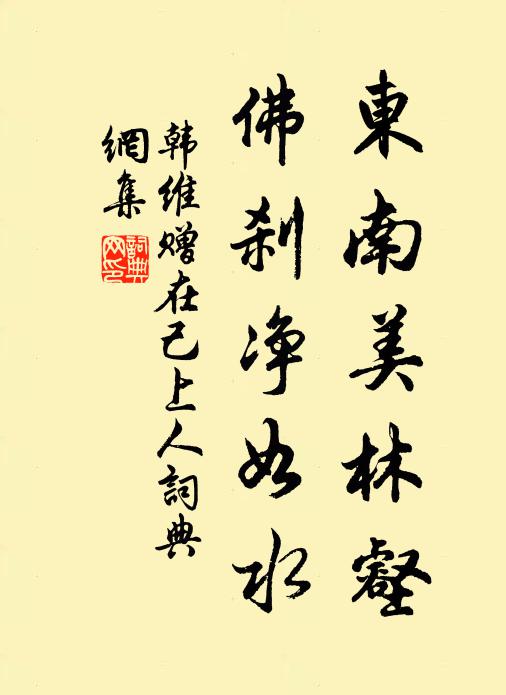 東南美林壑
佛刹净如水
韩维赠在己上人詞典
網集
詞典网印